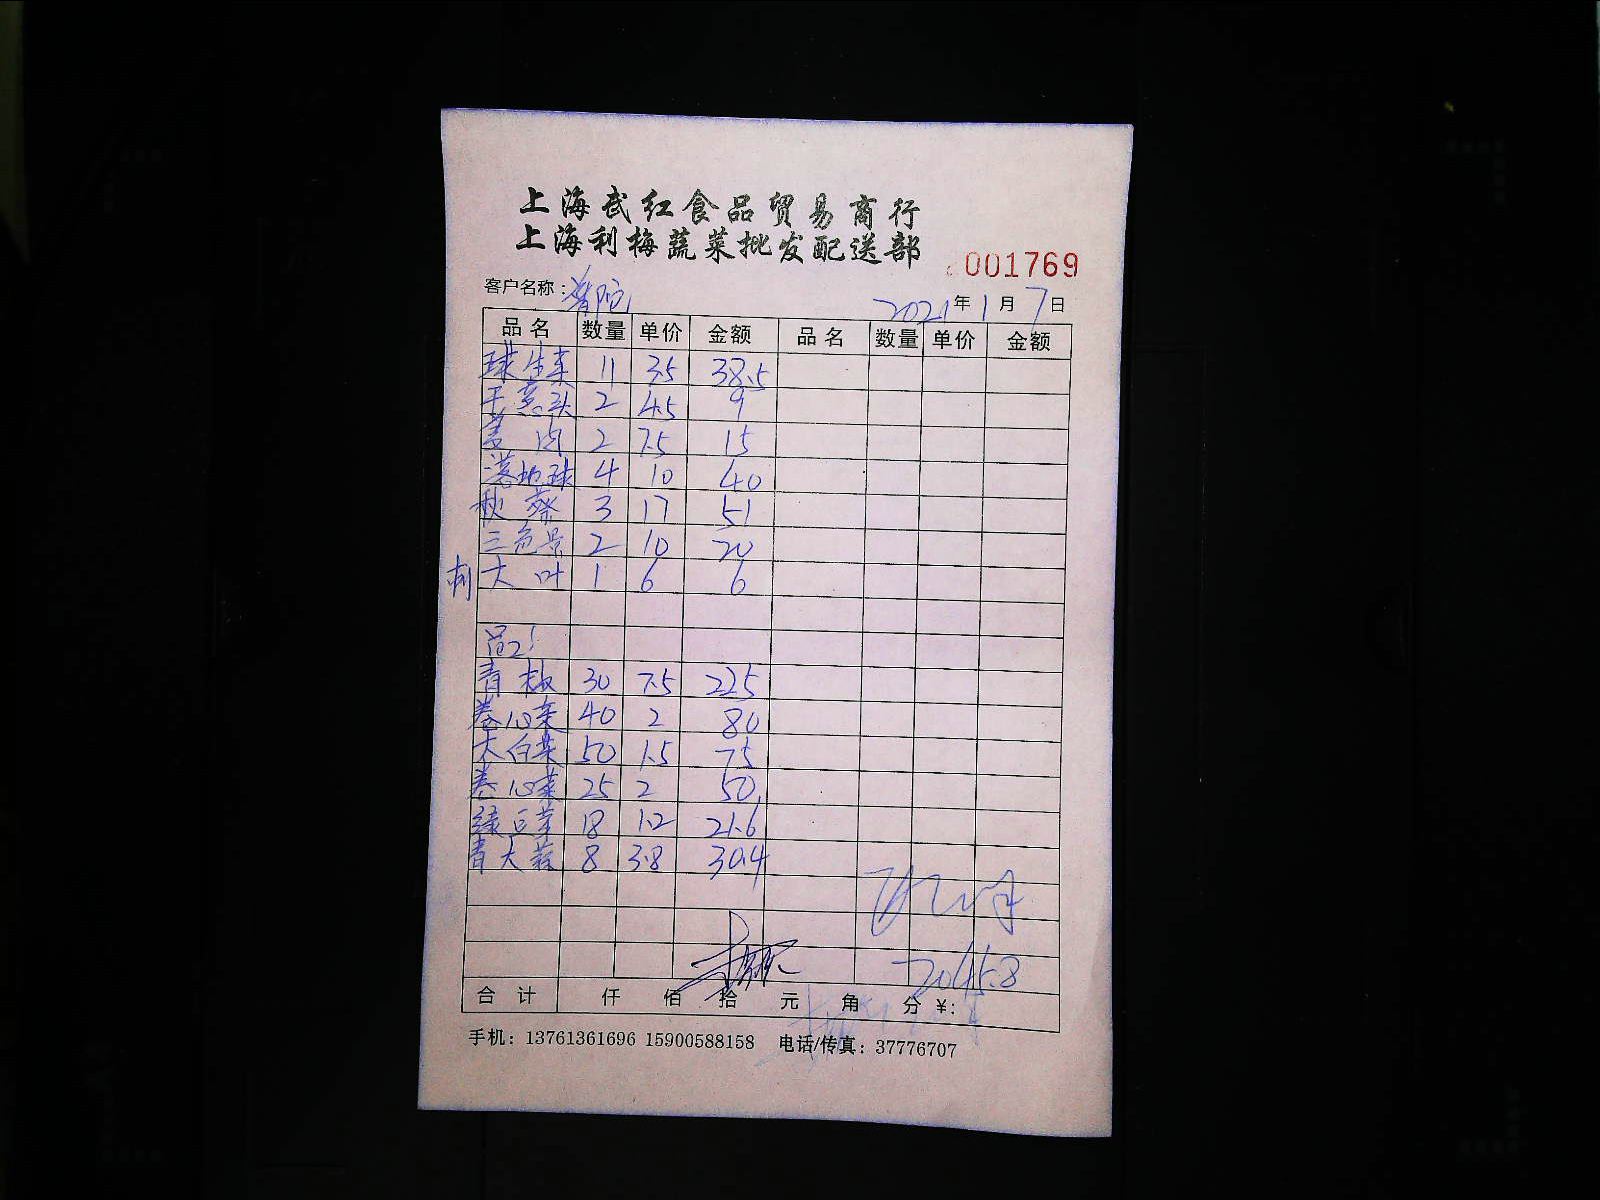 上海武红食品贸易商行
上海利梅蔬菜批发配送部
001769
客户名称：普院 2021年1月7日
品名 数量 单价 金额 品名 数量 单价 金额
球生菜 11 3.5 38.5
干葱头 2 4.5 9
姜肉 2 7.5 15
4 10 40
秋葵 3 17 51
三色景 2 10 20
大叶 1 6 6
青椒 30 7.5 225
卷心菜 40 2 80
大白菜 50 1.5 75
卷心菜 25 2 50
绿豆芽 18 1.2 21.6
青大蒜 8 3.8 30.4
2045.8
合计 仟 佰 拾 元 角 分 ¥:
手机：13761361696 15900588158 电话/传真：37776707